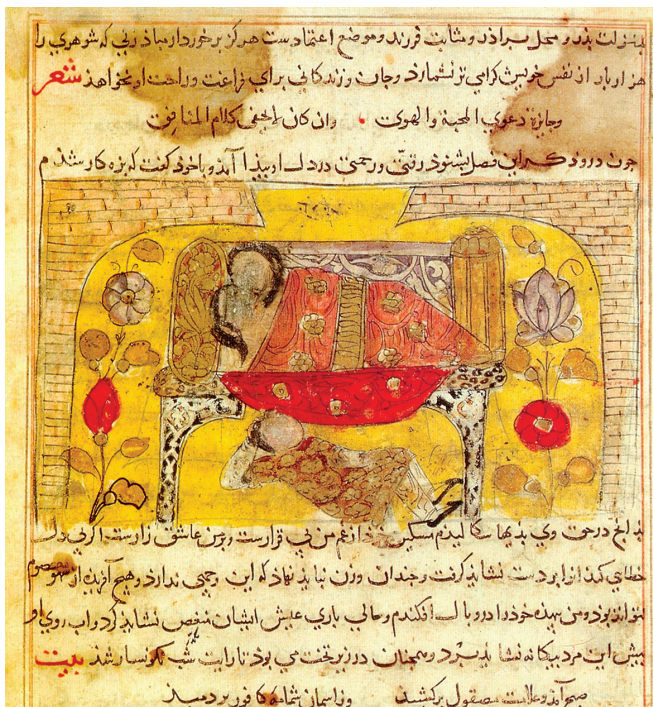 بمنزلت پدر و محل براذر و مثابت فرزند و موضع اعتمادست هرکز برخوردار مباذ زنی که شوهری را
هزار بار از نفس خویش کرامی تر نشمارد و جان و زندکانی برای فراغت و راحت او نخواهذ شعر
وجائزة دعوی المحبة والهوی وان کان لایخفی کلام المنافق
جون درودکر این فصل بشنوذ رقتی و رحمتی در دل او پیذا آمذ و با خود کفت که بزه کار شذم
بذانج در حق وی بذیها سکالیدم مسکین خوذ از غم من بی قرارست و در عاشق زارست اکر بی دل
خطایی کند آنرا بر دست نشایذ کرفت و جندان وزن نبایذ نهاد که این وجهی ندارد و هیج آفریذه از سهو معصوم
نتوانذ بود و من بیهذه خوذ را در وبال افکندم و حالی باری عیش ایشان منغص نشایذ کرد و اب روی او
بیش این مرد بیکانه نشایذ ببرد و همجنان در زیر تخت می بوذ تا رایت شب نکونسار شذ بیت
صبح آمذ و علامت مصقول برکشیذ وز آسمان شمامه کافور بردمیذ